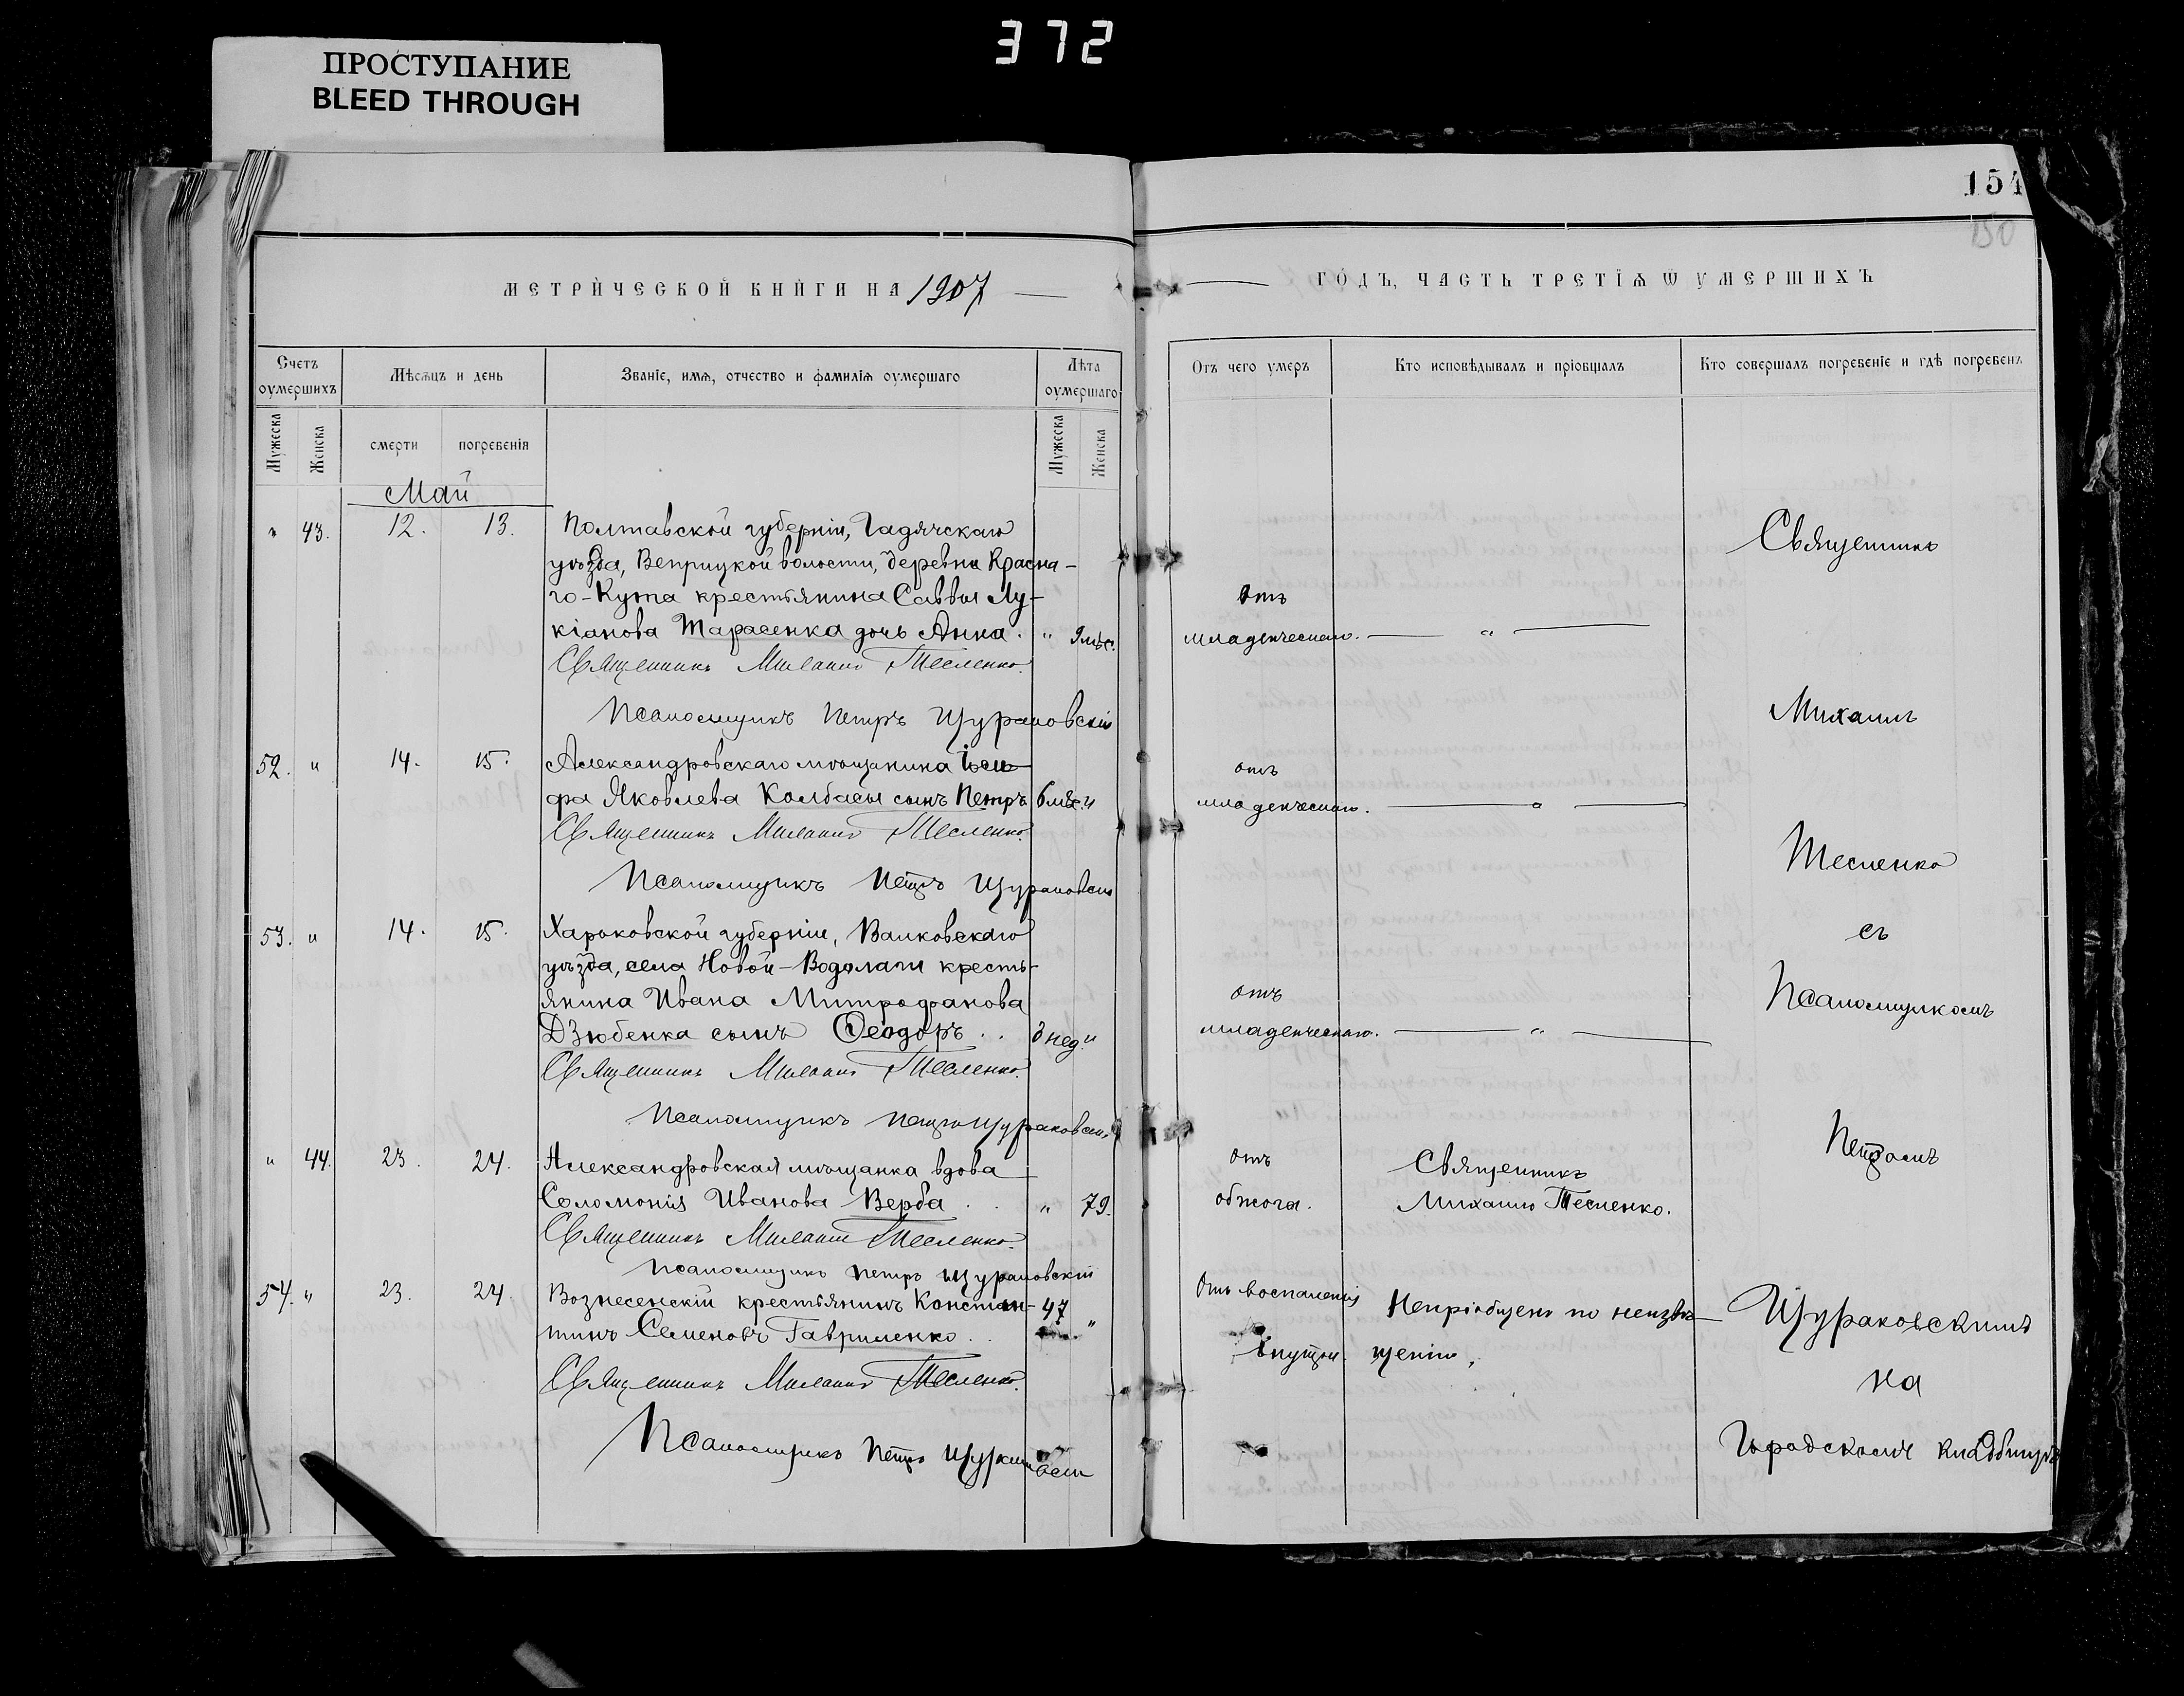 372
ПРОСТУПАНИЕ
BLEED THROUGH
154
150
МЕТРИ́ЧЕСКОЙ КНИ́ГИ НА 1907
ГО́ДЪ, ЧАСТЬ ТРЕТЇѦ Ѿ УМЕРШИХЪ
Счетъ оумершихъ
Мѣсѧцъ и день
Званїе, имѧ, отчество и фамилїѧ оумершаго
Лѣта оумершаго
Отъ чего умеръ
Кто исповѣдывалъ и прїобщалъ
Кто совершалъ погребенїе и гдѣ погребенъ
Мужеска
Женска
смерти
погребенїѧ
Мужеска
Женска
Май
" 43. 12. 13. Полтавской губерніи, Гадячскаго
уѣзда, Веприцкой волости, деревни Красна-
го-Кута крестьянина Саввы Лу-
кіанова Тарасенка дочь Анна. " 9 мѣс.
Отъ
младенческаго. "
Священникъ Михаилъ Тесленко.
Псаломщикъ Петръ Щураковскій
52. " 14. 15. Александровскаго мѣщанина Іоси-
фа Яковлева Колбасы сынъ Петръ 6 мѣс. "
отъ
младенческаго. "
Священникъ Михаилъ Тесленко.
Псаломщикъ Петръ Щураковскій
53. " 14. 15. Харьковской губерніи, Валковскаго
уѣзда, села Новой-Водолаги кресть-
янина Ивана Митрофанова
Дзюбенка сынъ Ѳеодоръ.. 3 нед. "
отъ
младенческаго. "
Священникъ Михаилъ Тесленко.
Псаломщикъ Петръ Щураковскій
" 44. 23. 24. Александровская мѣщанка вдова
Соломонія Иванова Верба.. " 79.
отъ
обжога.
Священникъ
Михаилъ Тесленко.
Священникъ Михаилъ Тесленко.
Псаломщикъ Петръ Щураковскій
54. " 23. 24. Вознесенскій крестьянинъ Констан-
тинъ Семеновъ Гавриленко.. 47 "
Отъ воспаленія
Непріобщенъ по неизвѣ-
щенію,
Священникъ Михаилъ Тесленко.
Псаломщикъ Петръ Щураковскій
Священникъ
Михаилъ
Тесленко
съ
Псаломщикомъ
Петромъ
Щураковскимъ
на
Городскомъ кладбищѣ